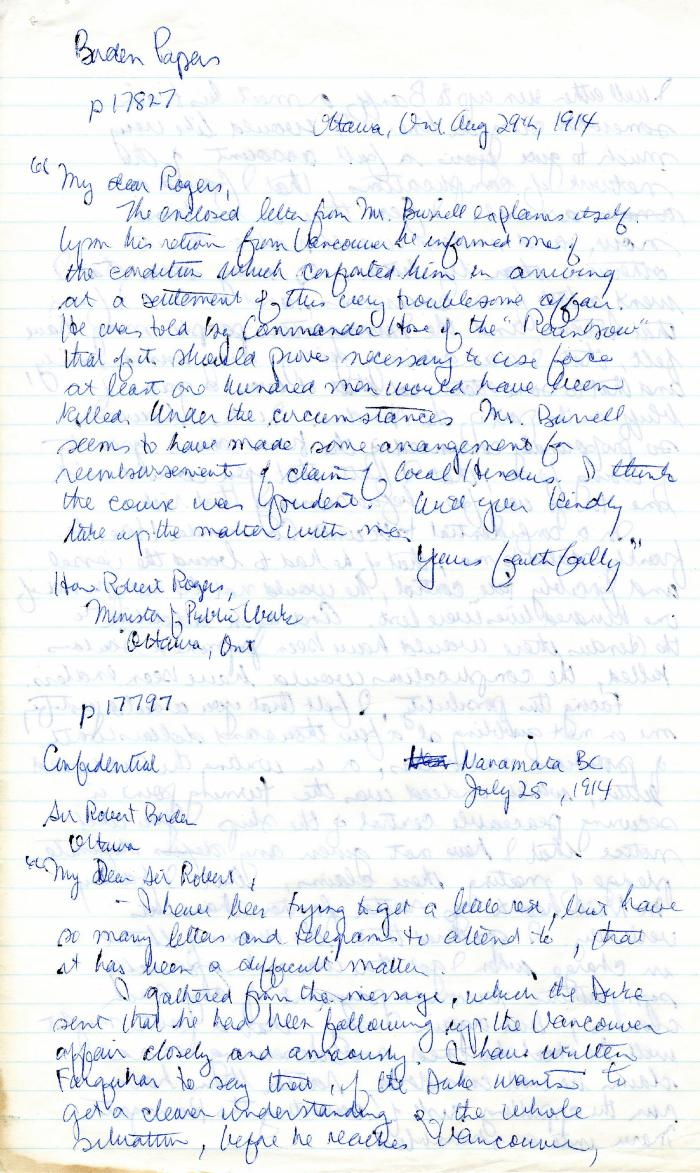 Borden Papers
p 17827
Ottawa, Ont. Aug 29th, 1914
"My dear Rogers,
The enclosed letter from Mr. Burrell explains itself.
Upon his return from Vancouver he informed me of
the condition which confronted him in arriving
at a settlement of this very troublesome affair.
He was told by Commander Hose of the "Rainbow"
that if it should prove necessary to use force
at least one hundred men would have been
killed. Under the circumstances Mr. Burrell
seems to have made some arangement for
reembursement of claim of local Hindus. I think
the course was prudent. Will you kindly
take up the matter with me.
Yours faithfully"
Hon. Robert Rogers,
Minister of Public Works
Ottawa, Ont
p 17797
Confidential
Naramata BC
July 25, 1914
Sir Robert Borden
Ottawa
"My Dear Sir Robert,
- I have been trying to get a little rest, but have
so many letters and telegrams to attend to, that
it has been a difficult matter.
I gathered from the message, which the Duke
sent that he had been following up the Vancouver
affair closely and anxiously. I have written
Farquhar to say that, if the Duke wants to
get a clearer understanding of the whole
situation, before he reaches Vancouver,